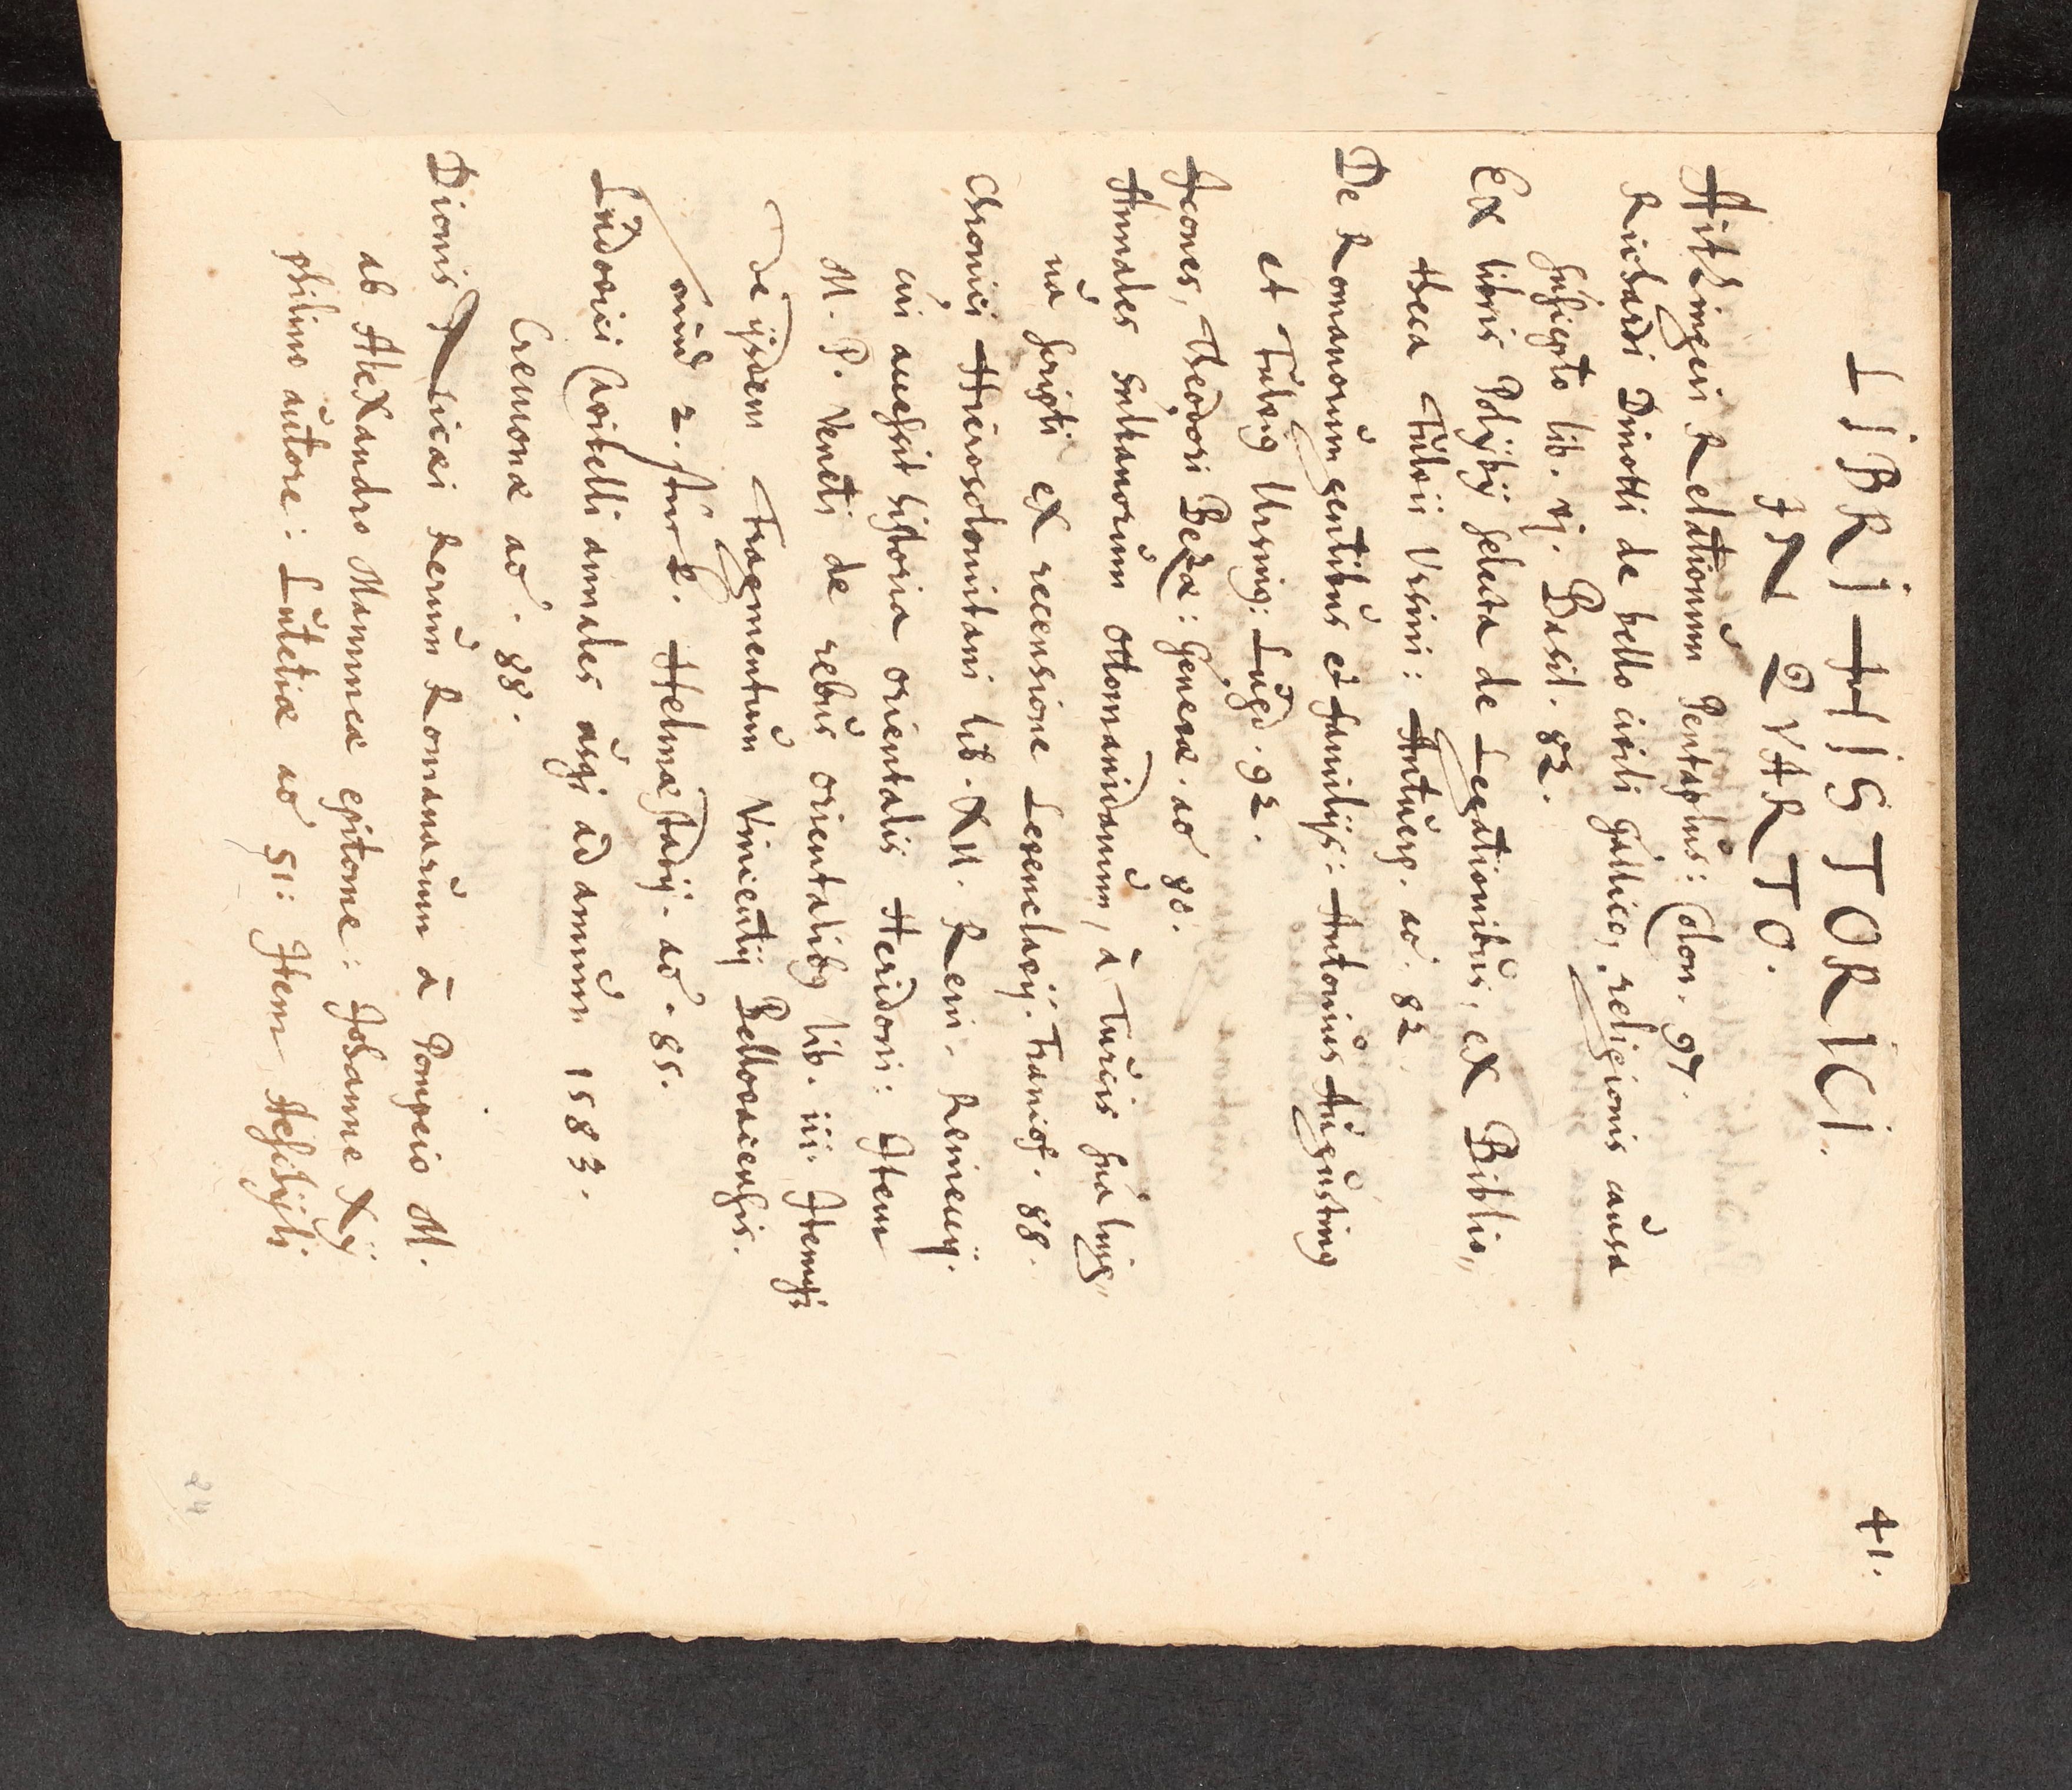 41.
LIBRI HISTORICI
IN QVARTO.
Aitzingeri Relationum Pentaplus: Colon. 97.
Richardi Dinotti de bello civili Gallico, religionis causa
suscepto lib. vj. Basil. 82.
Ex libris Polybij selecta de Legationibus, ex Biblio„
theca Fulvij Vrsini: Antuerp. ao. 82.
De Romanorum gentibus et familijs: Antonius Augustinꝰ
et Fulvius Ursinus: Lugd. 92.
Icones, Theodori Bezæ: Genevæ. ao 80.
Annales Sultanorum ottomanidarum, à Turcis sua ling„
ua scripti ex recensione Levenclavij. Francof. 88.
Chronici Hierosolomitani lib. XII. Reni. Reineccij.
cui accessit historia orientalis Heridoni: Item
M. P. Veneti de rebus orientalibꝰ lib. iii.
de ijsdem Fragmentum Vincentij Bellovacensis.
2. Helmæstadij. ao. 85.
Ludovici Cavitelli annales ad annum 1583.
Cremonæ ao. 88.
Dionis Nicæi Rerum Romanarum à Pompeio M.
ab Alexandro Mammeæ epitome: Johanne Xij
philino autore: Lutetiæ ao 51: Item
84